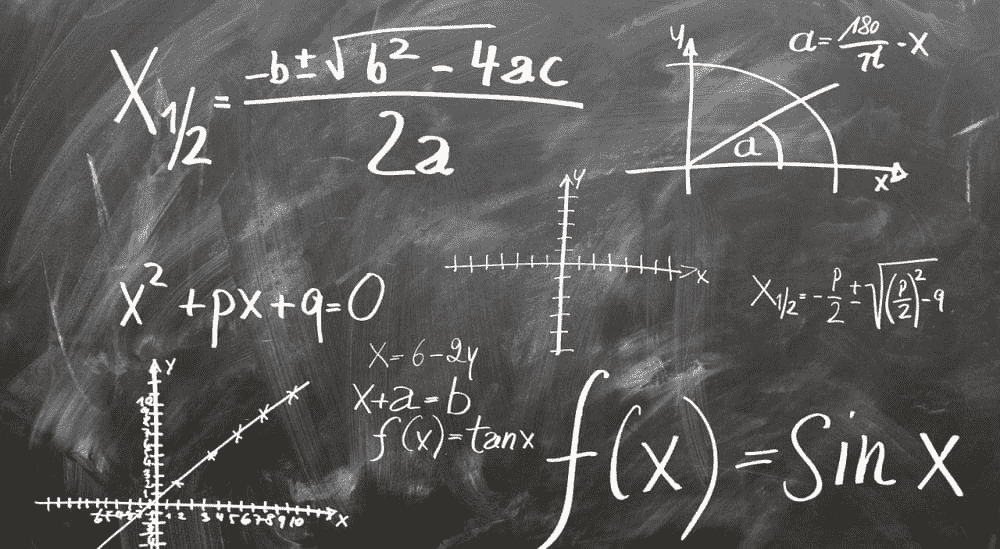 X₁/₂ = (-b ± √(b² - 4ac)) / 2a
y
a = 180/π · x
a
x
y
x
x² + px + q = 0
x₁/₂ = -p/2 ± √((p/2)² - q)
x = 6 - 2y
x + a = b
f(x) = tan x
f(x) = sin x
y
10
1 2 3 4 5 6 7 8 9 10
x